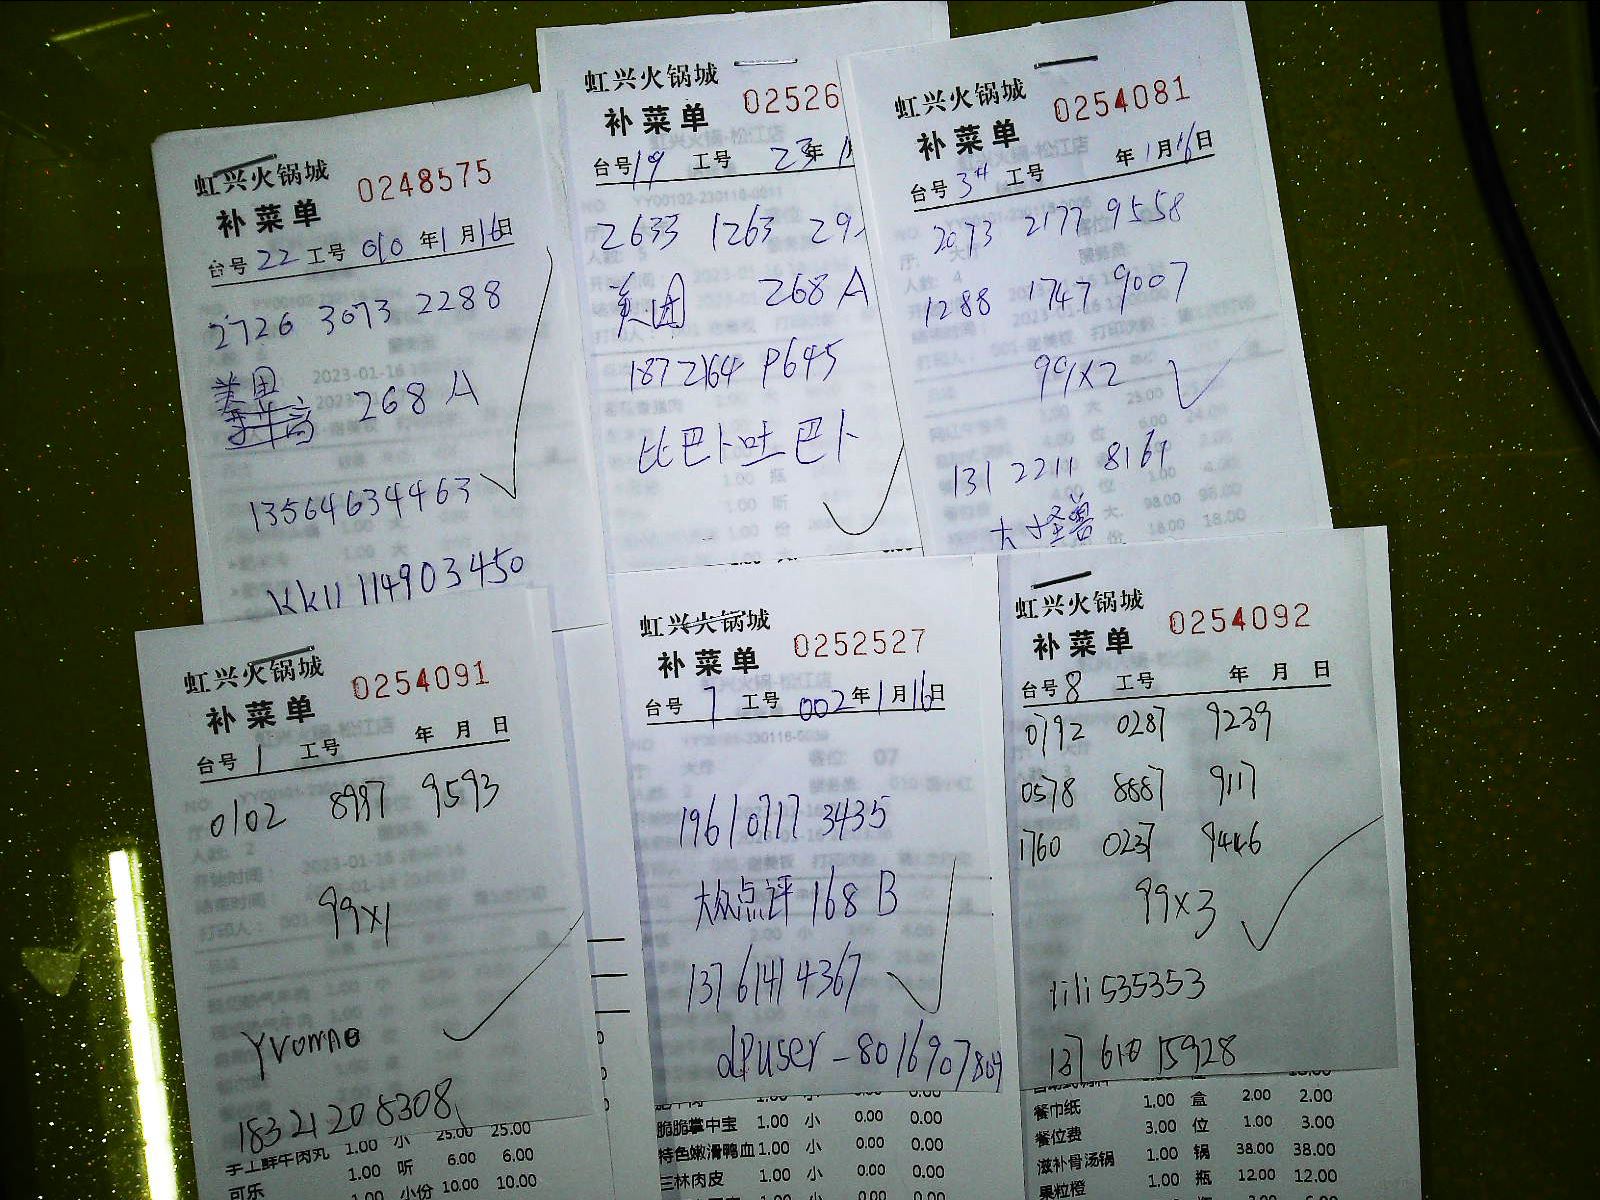 虹兴火锅城
补菜单 0248575
台号 22 工号 010 年 1 月 16 日
2726 3073 2288
美团 268 A
13564634463
KK11 114903450
虹兴火锅城
补菜单 02526
台号 19 工号 23 年 1
2633 1263 29
美团 268 A
187 2164 P645
比巴卜吐巴卜
虹兴火锅城
补菜单 0254081
台号 34 工号 年 1 月 16 日
2073 2177 9558
1288 1747 9007
99×2
131 2211 8169
大怪兽
虹兴火锅城
补菜单 0254091
台号 1 工号 年 月 日
0102 8997 9593
99×1
Yvonne
18321208308
手工鲜牛肉丸 1.00 小 25.00 25.00
可乐 1.00 听 6.00 6.00
1.00 小份 10.00 10.00
虹兴火锅城
补菜单 0252527
台号 7 工号 002 年 1 月 16 日
1961 0717 3435
大众点评 168 B
13761414367
dpuser-8016907809
脆脆掌中宝 1.00 小 0.00 0.00
特色嫩滑鸭血 1.00 小 0.00 0.00
三林肉皮 1.00 小 0.00 0.00
虹兴火锅城
补菜单 0254092
台号 8 工号 年 月 日
0792 0287 9239
0578 8887 9117
1760 0237 9446
99×3
lili535353
137 610 15928
餐巾纸 1.00 盒 2.00 2.00
餐位费 3.00 位 1.00 3.00
滋补骨汤锅 1.00 锅 38.00 38.00
果粒橙 1.00 瓶 12.00 12.00